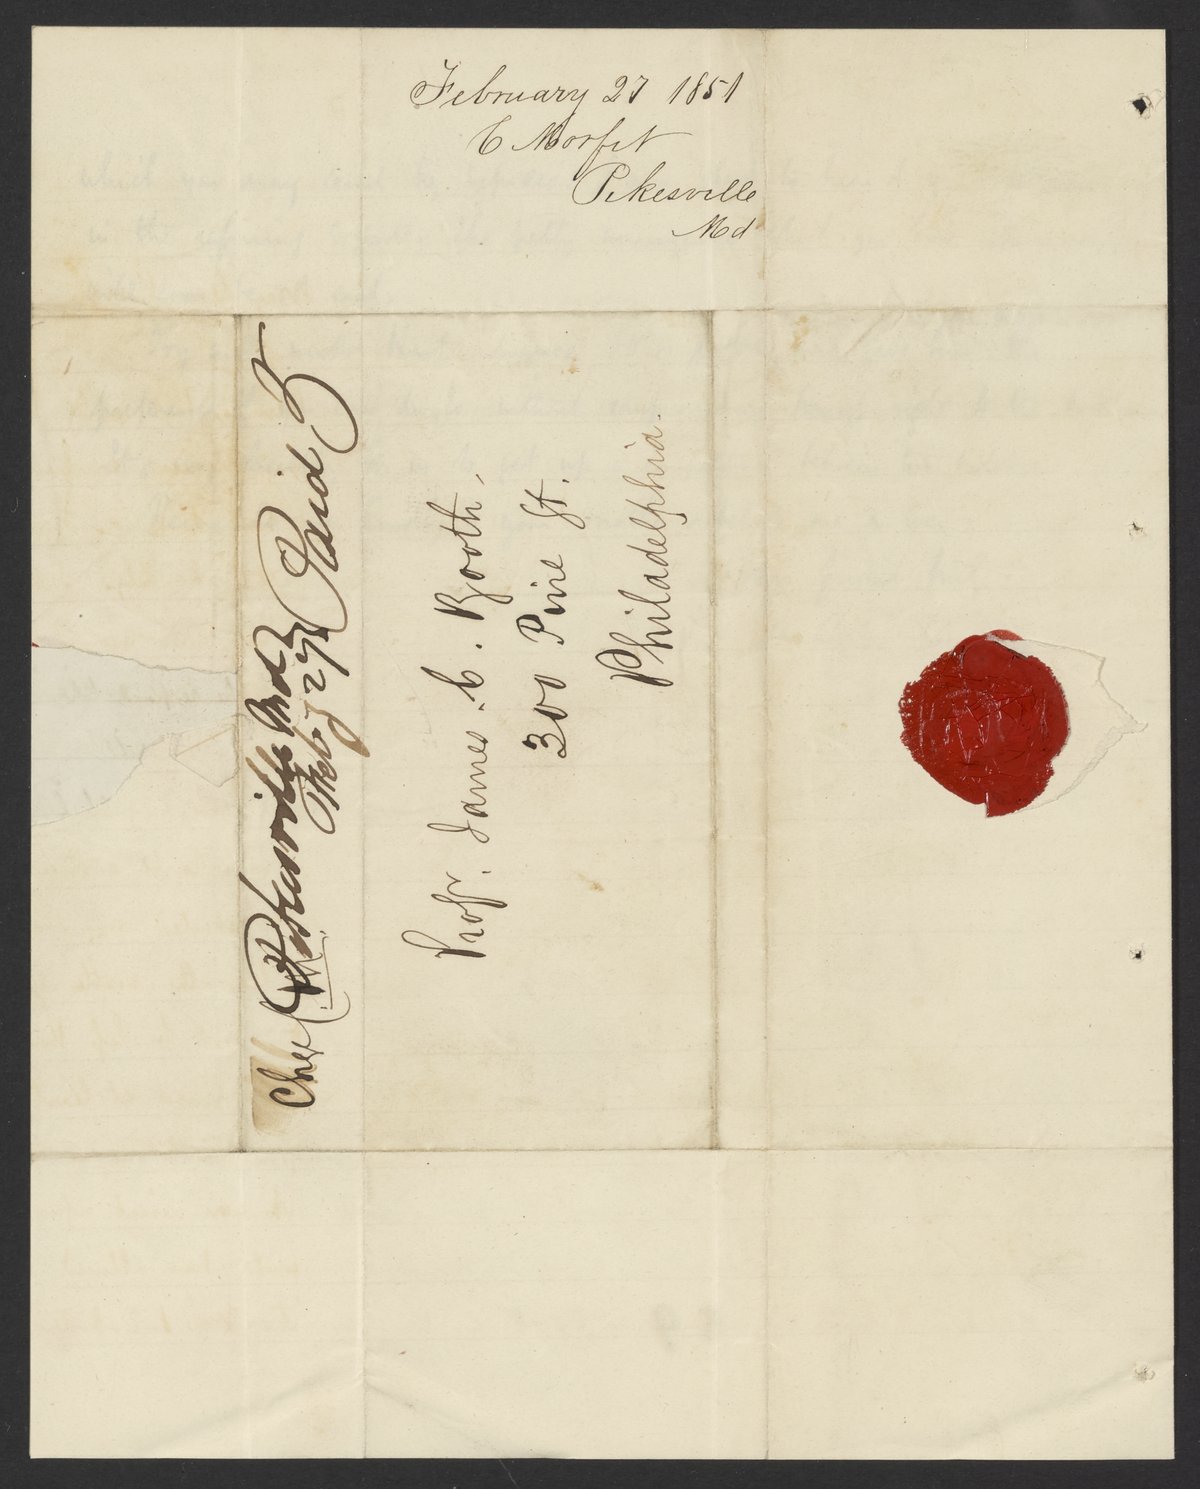 February 27 1851
C Morfit
Pikesville
Md
Pikesville Md
Feby 27th
Paid 3
Profr. James. C. Booth,
300 Pine St.
Philadelphia.